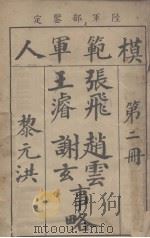 陸軍部鑒定
模範軍人
第二冊
張飛 趙雲
王濬 謝玄
事略
黎元洪